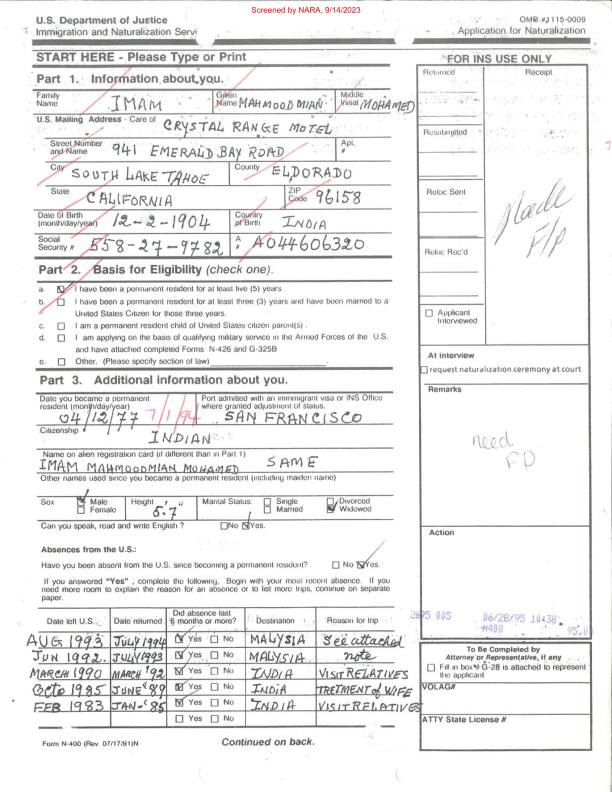 Screened by NARA, 9/14/2023
U.S. Department of Justice
Immigration and Naturalization Servi
OMB #1115-0009
Application for Naturalization
START HERE - Please Type or Print
Part 1. Information about you.
Family Name IMAM
Given Name MAHMOOD MIAN
Middle Initial MOHAMED
U.S. Mailing Address - Care of CRYSTAL RANGE MOTEL
Street Number and Name 941 EMERALD BAY ROAD
Apt. #
City SOUTH LAKE TAHOE
County ELDORADO
State CALIFORNIA
ZIP Code 96158
Date of Birth (month/day/year) 12-2-1904
Country of Birth INDIA
Social Security # 558-27-9782
A # A044606320
Part 2. Basis for Eligibility (check one).
a. I have been a permanent resident for at least five (5) years.
b. I have been a permanent resident for at least three (3) years and have been married to a
United States Citizen for those three years.
c. I am a permanent resident child of United States citizen parent(s).
d. I am applying on the basis of qualifying military service in the Armed Forces of the U.S.
and have attached completed Forms N-426 and G-325B
e. Other. (Please specify section of law)
Part 3. Additional information about you.
Date you became a permanent resident (month/day/year) 04/12/77 7/1/94
Port admitted with an immigrant visa or INS Office where granted adjustment of status. SAN FRANCISCO
Citizenship INDIAN
Name on alien registration card (if different than in Part 1)
IMAM MAHMOODMIAN MOHAMED SAME
Other names used since you became a permanent resident (including maiden name)
Sex Male Female
Height 5'.7"
Marital Status: Single Divorced
Married Widowed
Can you speak, read and write English? No Yes.
Absences from the U.S.:
Have you been absent from the U.S. since becoming a permanent resident? No Yes.
If you answered "Yes", complete the following, Begin with your most recent absence. If you
need more room to explain the reason for an absence or to list more trips, continue on separate
paper.
Date left U.S. Date returned Did absence last 6 months or more? Destination Reason for trip
AUG 1993 JULY 1994 Yes No MALYSIA See attached
JUN 1992. JULY 1993 Yes No MALYSIA note
MARCH 1990 MARCH '92 Yes No INDIA VISIT RELATIVES
Octo 1985 JUNE '89 Yes No INDIA TRETMENT of WIFE
FEB 1983 JAN-'85 Yes No INDIA VISIT RELATIVES
Yes No
Form N-400 (Rev. 07/17/91)N
Continued on back.
FOR INS USE ONLY
Returned
Receipt
Resubmitted
Reloc Sent
Made
F/P
Reloc Rec'd
Applicant Interviewed
At interview
request naturalization ceremony at court
Remarks
need
FD
Action
2695 005 06/28/95 10:38
N400 95.00
To Be Completed by
Attorney or Representative, if any
Fill in box if G-28 is attached to represent
the applicant
VOLAG#
ATTY State License #